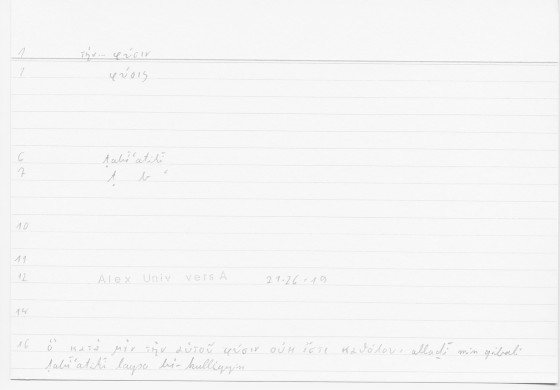 1 τὴν – φύσιν
1 φύσις
6 ṭabīʿatihī
7 ṭ b ʿ
10
11
12 Alex Univ vers A 21-26 + 19
14
15 ὃ κατὰ μὲν τὴν αὑτοῦ φύσιν οὐκ ἔστι καθόλου · allaḏī min qibali
ṭabīʿatihī laysa bi-kulliyyin